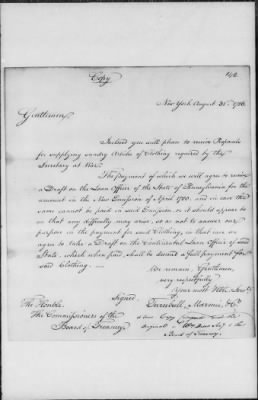 142
Copy
New York August 31st 1786
Gentlemen,
Inclosed you will please to receive Proposals
for supplying sundry Articles of Clothing required by the
Secretary at War.
The payment of which we will agree to receive
a Draft on the Loan Officer of the State of Pennsylvania for the
amount in the New Emission of April 1780. and in case the
same cannot be paid in said Emission, or it should appear to
us that any difficulty may arise, so as not to answer our
purpose in the payment for said Clothing, in that case we
agree to take a Draft on the Continental Loan Officer of said
State, which when paid, shall be deemed a full payment for
said Clothing.
We remain, Gentlemen,
very respectfully
Your most Obt. Servts.
Signed Turnbull, Marmie, & Co.
The Honble.
The Commissioners of the
Board of Treasury
a true Copy
original
Board of Treasury